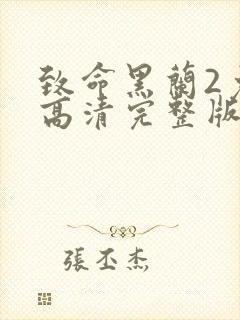 致命黑蘭2
高清完整版
張丕杰